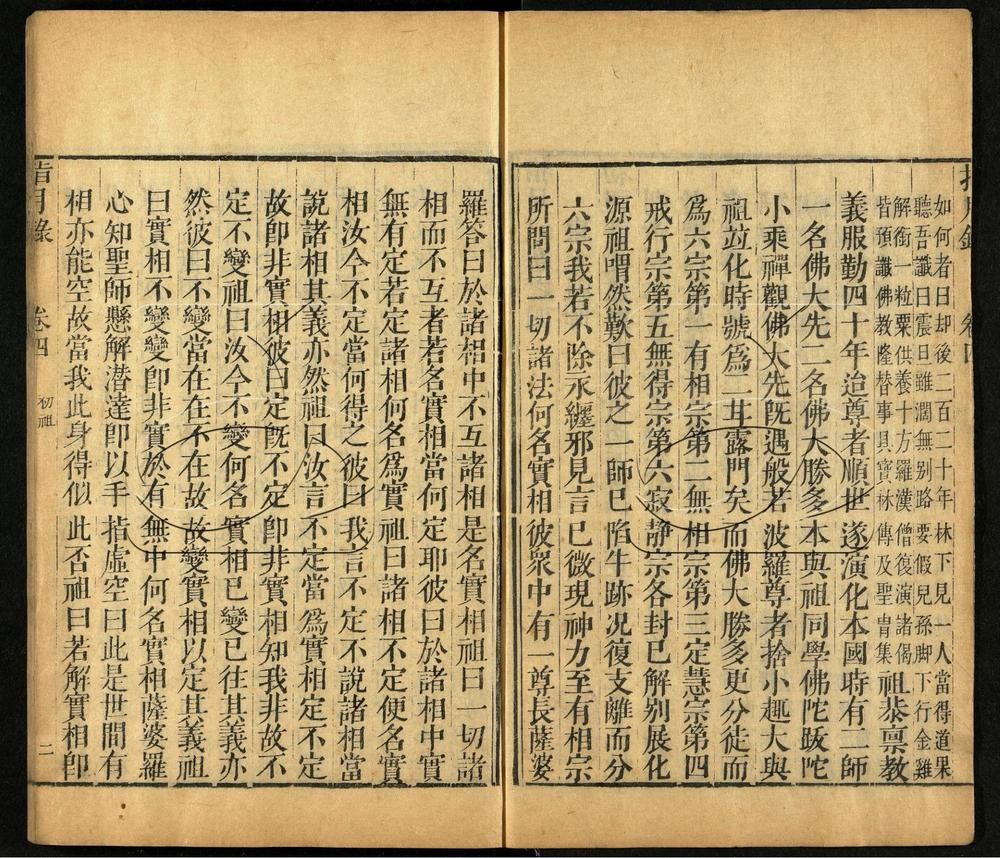 指月錄 卷四
如何者曰却後二百二十年林下見一人當得道果
聽吾讖曰震旦雖濶無别路要假兒孫脚下行金雞
解銜一粒粟供養十方羅漢僧復演諸偈
皆預讖佛教隆替事具寶林傳及聖胄集
祖恭禀教
義服勤四十年迨尊者順世遂演化本國時有二師
一名佛大先二名佛大勝多本與祖同學佛陀跋陀
小乘禪觀佛大先旣遇般若波羅尊者捨小趣大與
祖竝化時號爲二甘露門矣而佛大勝多更分徒而
爲六宗第一有相宗第二無相宗第三定慧宗第四
戒行宗第五無得宗第六寂靜宗各封己解别展化
源祖喟然歎曰彼之一師已陷牛跡况復支離而分
六宗我若不除永纏邪見言已微現神力至有相宗
所問曰一切諸法何名實相彼衆中有一尊長薩婆
羅答曰於諸相中不互諸相是名實相祖曰一切諸
相而不互者若名實相當何定耶彼曰於諸相中實
無有定若定諸相何名爲實祖曰諸相不定便名實
相汝今不定當何得之彼曰我言不定不說諸相當
說諸相其義亦然祖曰汝言不定當爲實相定不定
故卽非實相彼曰定旣不定卽非實相知我非故不
定不變祖曰汝今不變何名實相已變已往其義亦
然彼曰不變當在在不在故故變實相以定其義祖
曰實相不變變卽非實於有無中何名實相薩婆羅
心知聖師懸解潜達卽以手指虛空曰此是世間有
相亦能空故當我此身得似此否祖曰若解實相卽
指月錄 卷四 初祖 二